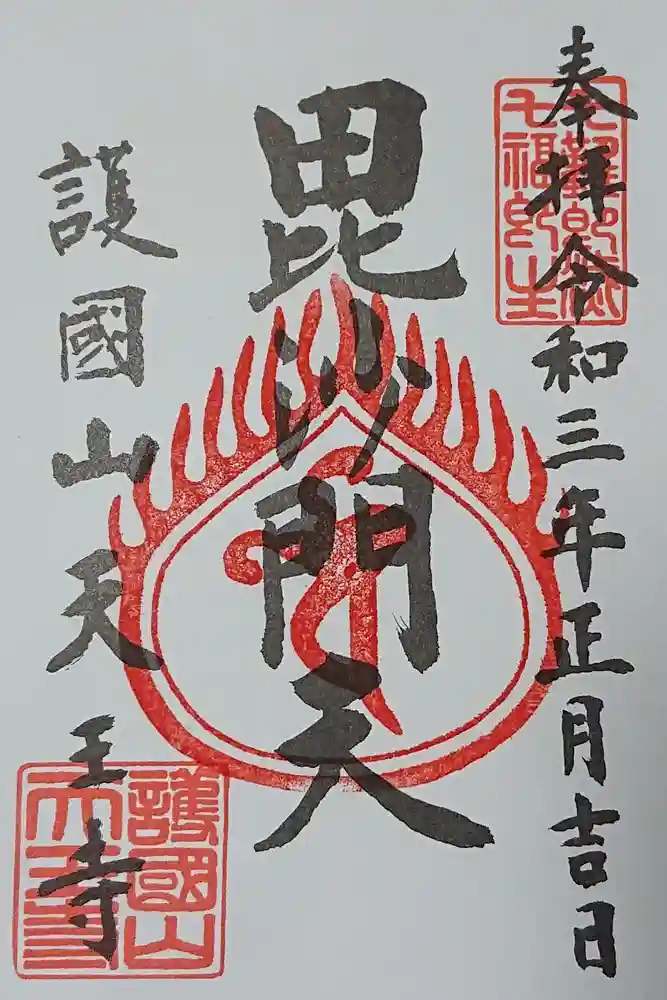 奉拝 令和三年正月吉日
毘沙門天
護國山天王寺
七難即滅
七福即生
護國山
天王寺